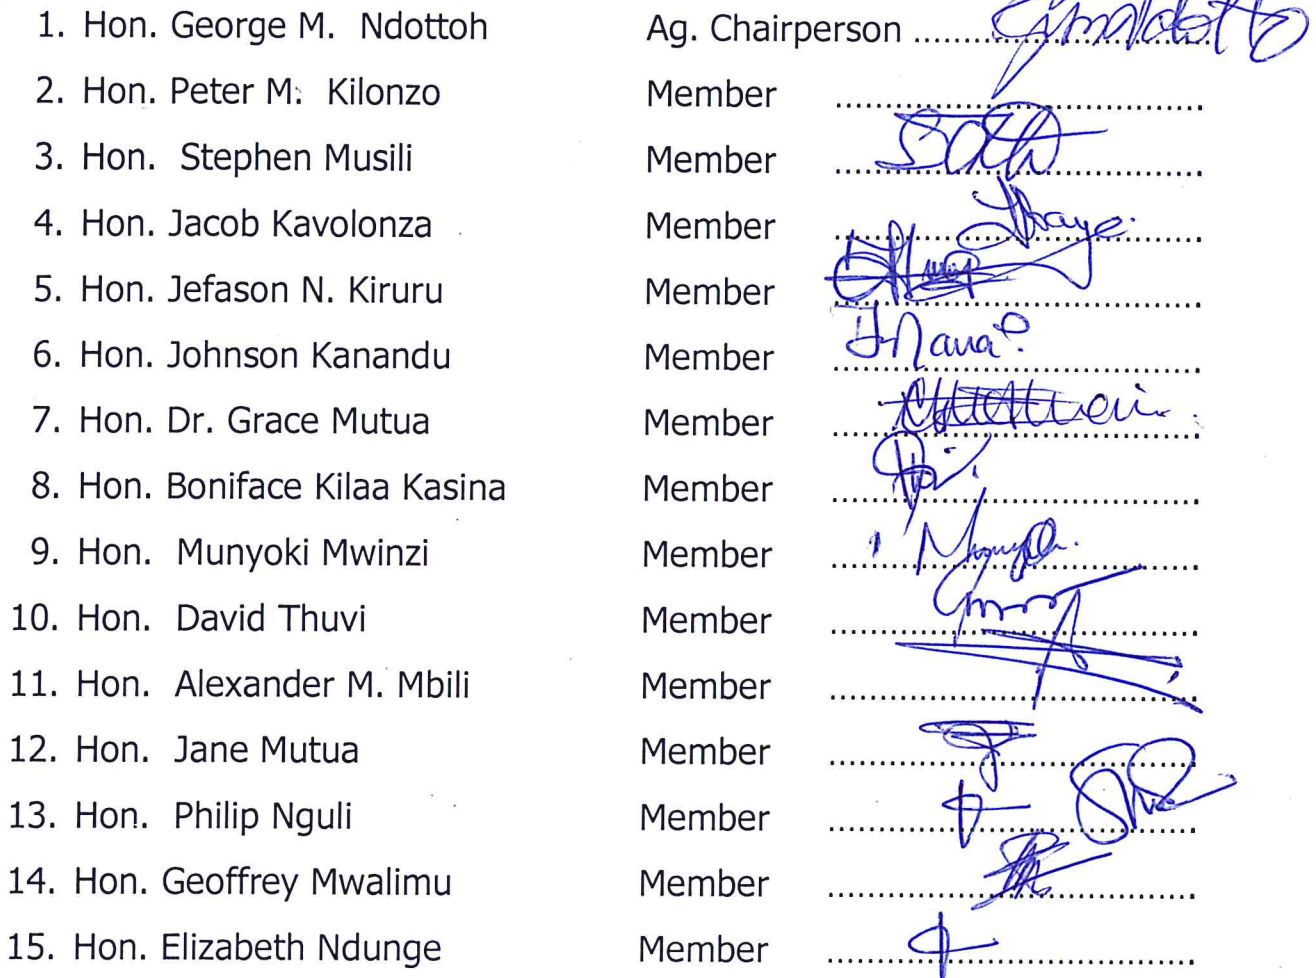 1. Hon. George M. Ndottoh Ag. Chairperson ..........
2. Hon. Peter M. Kilonzo Member ..........
3. Hon. Stephen Musili Member ..........
4. Hon. Jacob Kavolonza Member ..........
5. Hon. Jefason N. Kiruru Member ..........
6. Hon. Johnson Kanandu Member ..........
7. Hon. Dr. Grace Mutua Member ..........
8. Hon. Boniface Kilaa Kasina Member ..........
9. Hon. Munyoki Mwinzi Member ..........
10. Hon. David Thuvi Member ..........
11. Hon. Alexander M. Mbili Member ..........
12. Hon. Jane Mutua Member ..........
13. Hon. Philip Nguli Member ..........
14. Hon. Geoffrey Mwalimu Member ..........
15. Hon. Elizabeth Ndunge Member ..........